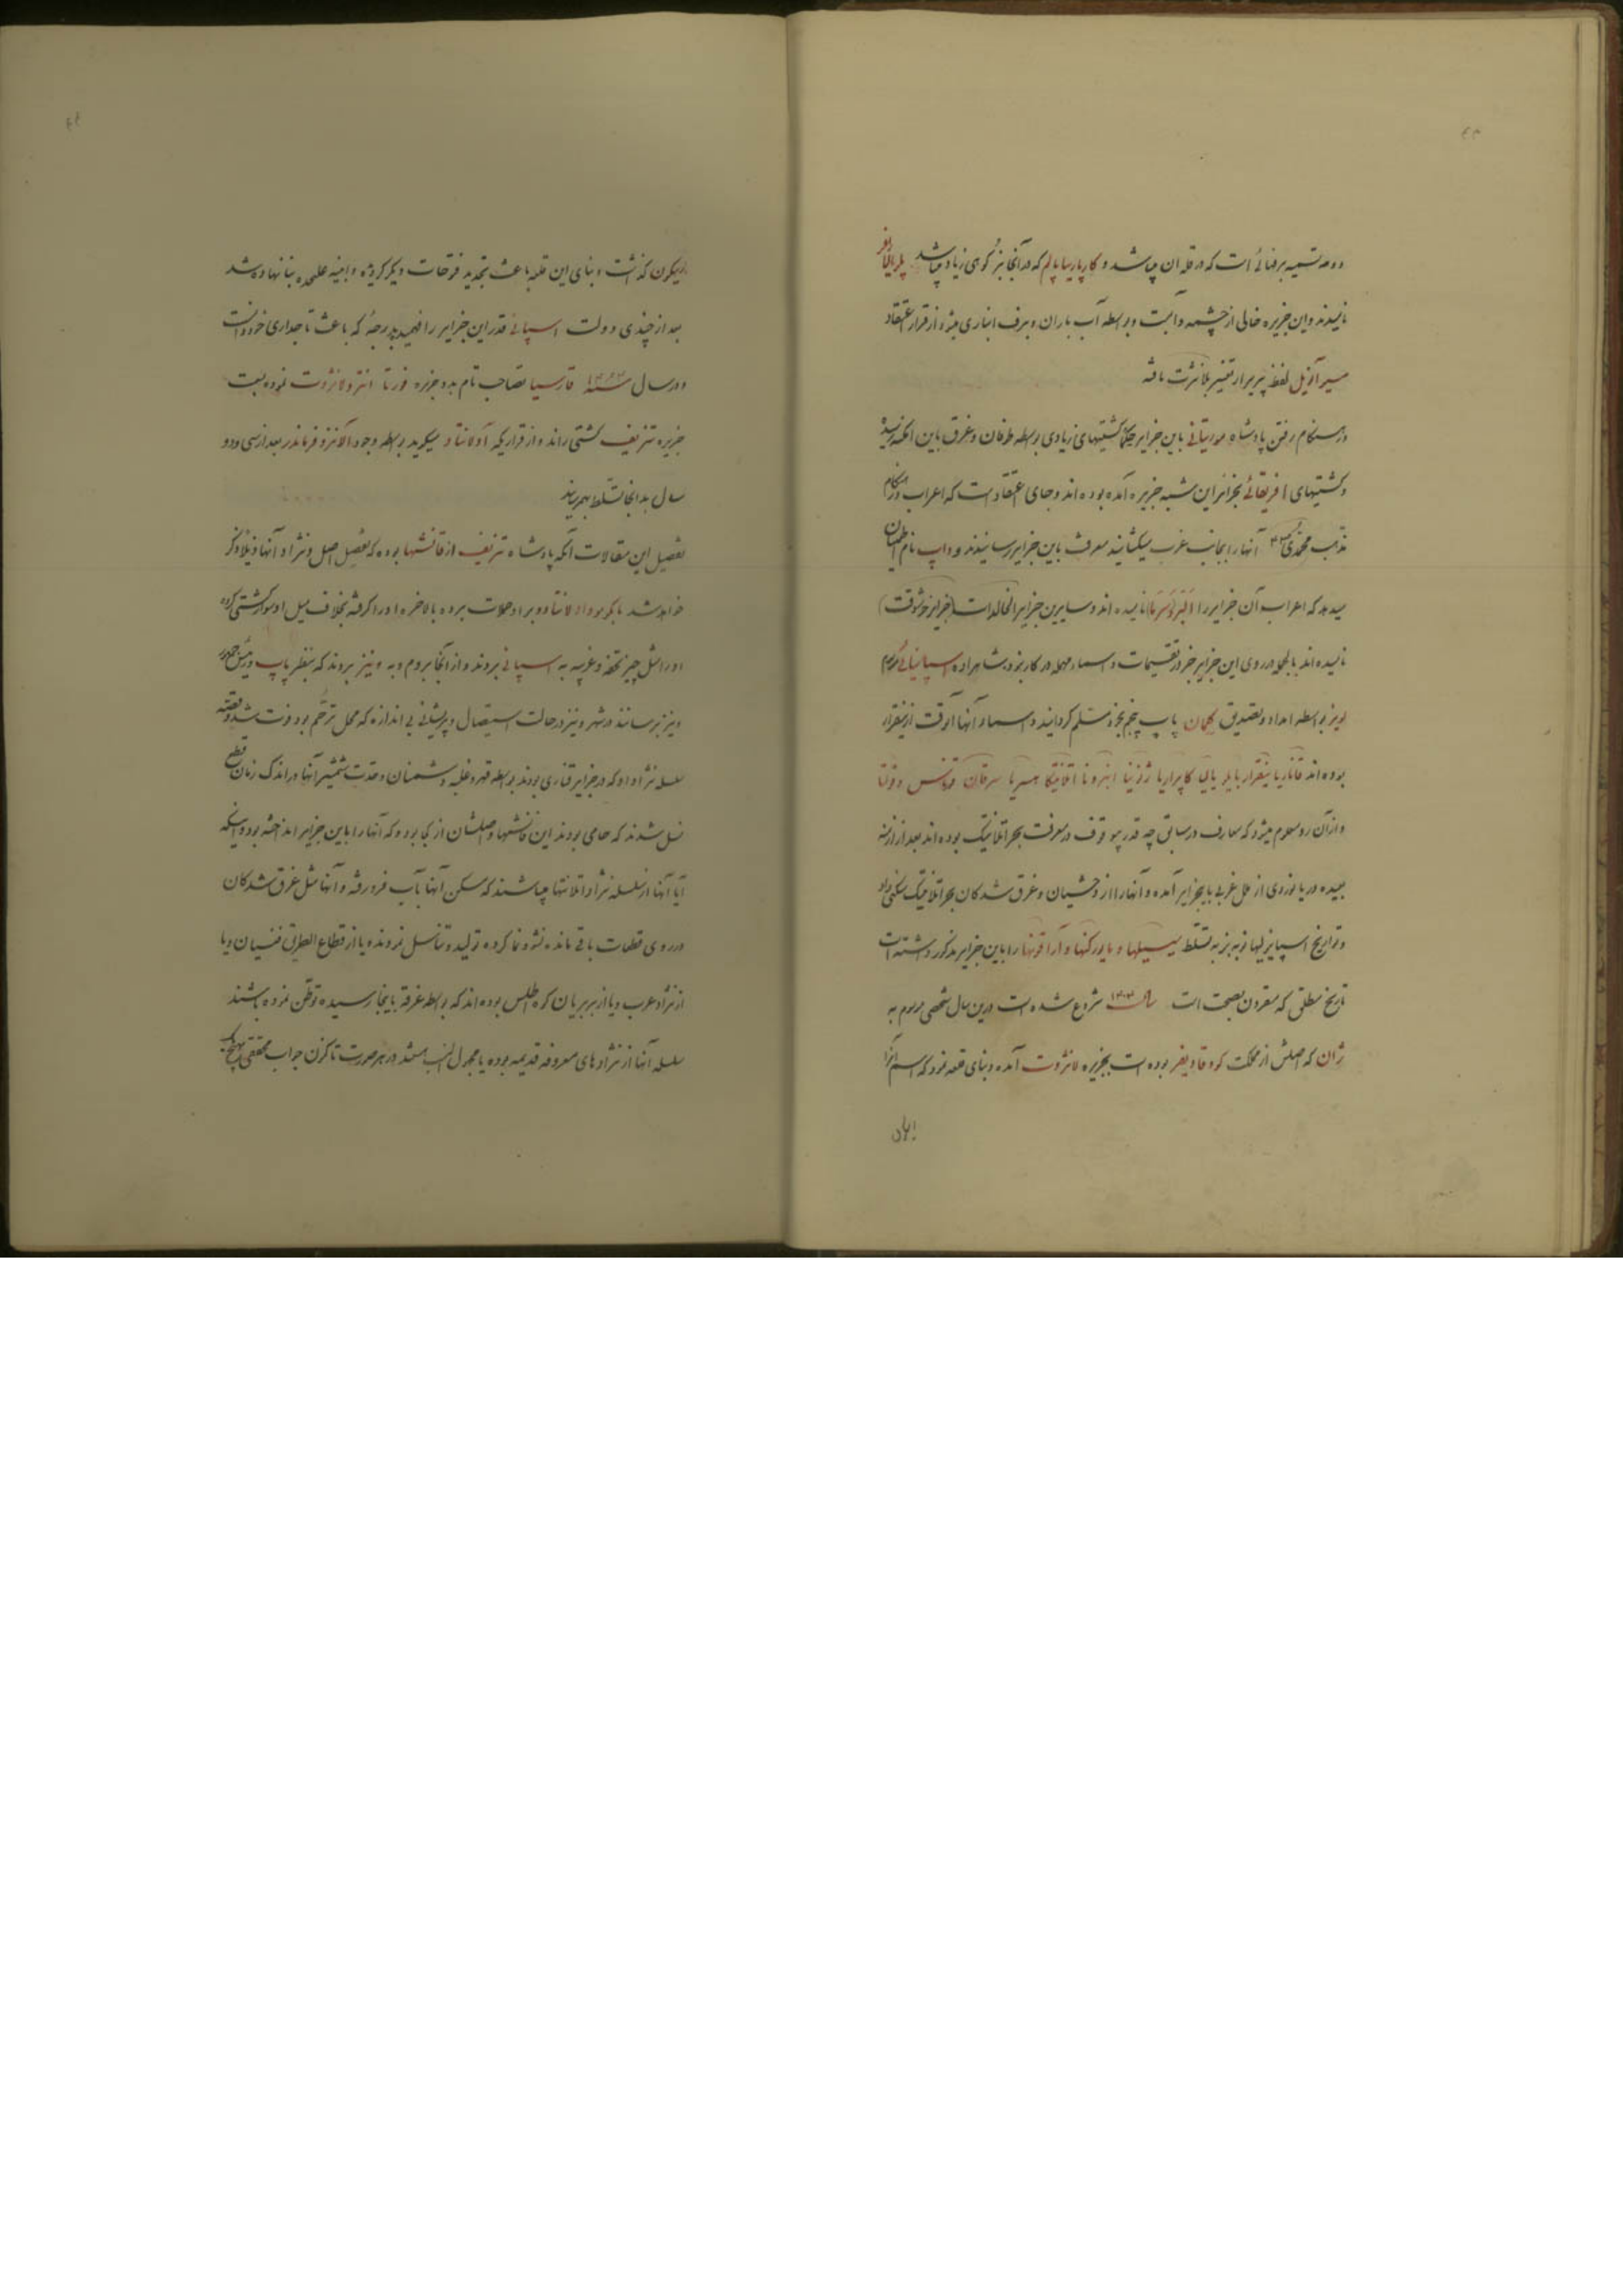 و وجه تسمیه برفهائی است که در قله آن میباشد و کاپاریا یا پالم که در آنجا بز کوهی زیاد میباشد
نامیدند و این جزیره خالی از چشمه و آبست و بواسطه آب باران و برف انباری میشود از قرار اعتقاد
مسیر آویل لفظ پریرار تغییر بلانژرت یافته
در هنگام رفتن پادشاه موریتانی باین جزایر کشتیهای زیادی بواسطه طوفان و غرق باین امکنه رسیده
و کشتیهای افریقائی بجزائر این شبه جزیره آمده بوده اند و جای اعتقاد است که اعراب در هنگام
مذهب محمدی آنها را بجانب غرب میکشانید معرفت باین جزایر رسانیدند و واپ نام
میدهد که اعراب آن جزایر را نامیده اند و سایرین جزایر الخالدات (جزایر خوشوقت)
نامیده اند بالجمله در روی این جزایر جز در تقسیمات و اسماء مهمله در کار نبود شاهزاده اسپانیائی موسوم
لویز بواسطه امداد و تصدیق کلمان پاپ پنجم بخود مسلم گردانید و اسماء آنها آنوقت ازینقرار
بوده اند قاناریا نینقرار کاپراریا ژنونیا اتلانتیکا هسپریا سرقان قودنس
و از آن رو معلوم میشود که معارف در سابق چه قدر موقوف در معرفت بحر اتلانتیک بوده اند بعد از ازمنه
بعیده دریانوردی از ملل غربی بایجزایر آمده و آنها را از وحشیان و غرق شدگان بحر اتلانتیک سکنی داد
و تواریخ اسپانیولیها نوبه بنوبه تسلط سیسیلیها و مایورکیها و آراقونیها را باین جزایر مذکور داشته است
تاریخ مطلق که مقرون بصحت است سال ۱۴۰۳ شروع شده است درین سال شخصی موسوم به
ژان که اصلش از مملکت کود قادیفر بوده است بجزیره لانژروت آمده و بنای قلعه نمود که اسم آنرا
رویکون گذاشت و بنای این قلعه باعث تجدید فتوحات دیگر گردیده و ابنیه علیحده بنا نهاده شد
بعد از چندی دولت اسپانی قدر این جزایر را فهمید بدرجهٔ که باعث تاجداری خود دانست
و در سال قارسیا تصاحب نام بدو جزیره فورتا انترو لانژروت نموده بسمت
جزیره تنریف کشتی راند و از قراریکه آولانتاو میگوید بواسطه وجود آلانزو فرناندز بعد از سی و دو
سال بدانجا تسلط بهمرسانید
تفصیل این مقالات آنکه پادشاه تنریف از قانشها بوده که تفصیل اصل و نژاد آنها ذیلا ذکر
خواهد شد بالاخره او را گرفته بخلاف میل او سوار کشتی کرده
او را مثل چیز تحفه و غریبه به اسپانی بردند و از آنجا بروم و به ونیز بردند که بنظر پاپ و رئیس جمهور
ونیز برسانند در شهر ونیز در حالت استیصال و پریشانی بی اندازه که محل ترحم بود فوت شد
سلسله نژاد او که در جزایر قناری بودند بواسطه قهر و غلبه دشمنان و حدت شمشیر آنها در اندک زمان قطع
نسل شدند که حامی بودند این قانشها و اصلشان از کجا بوده و که آنها را باین جزایر انداخته بود و اینکه
آیا آنها از سلسله نژاد اتلانتها میباشند که مسکن آنها بآب فرو رفته و آنها مثل غرق شدگان
در روی قطعات باقی مانده نشو و نما کرده تولید و تناسل نمودند و یا از قطاع الطریق فنسیان و یا
از نژاد عرب و یا از بربریان کوه اطلس بوده اند که بواسطه غرقه باینجا رسیده توطن نموده باشند
سلسله آنها از نژادهای معروفه قدیمه بوده یا مجهول النسب باشند در هر صورت تا کنون جواب محققی بهیچیک